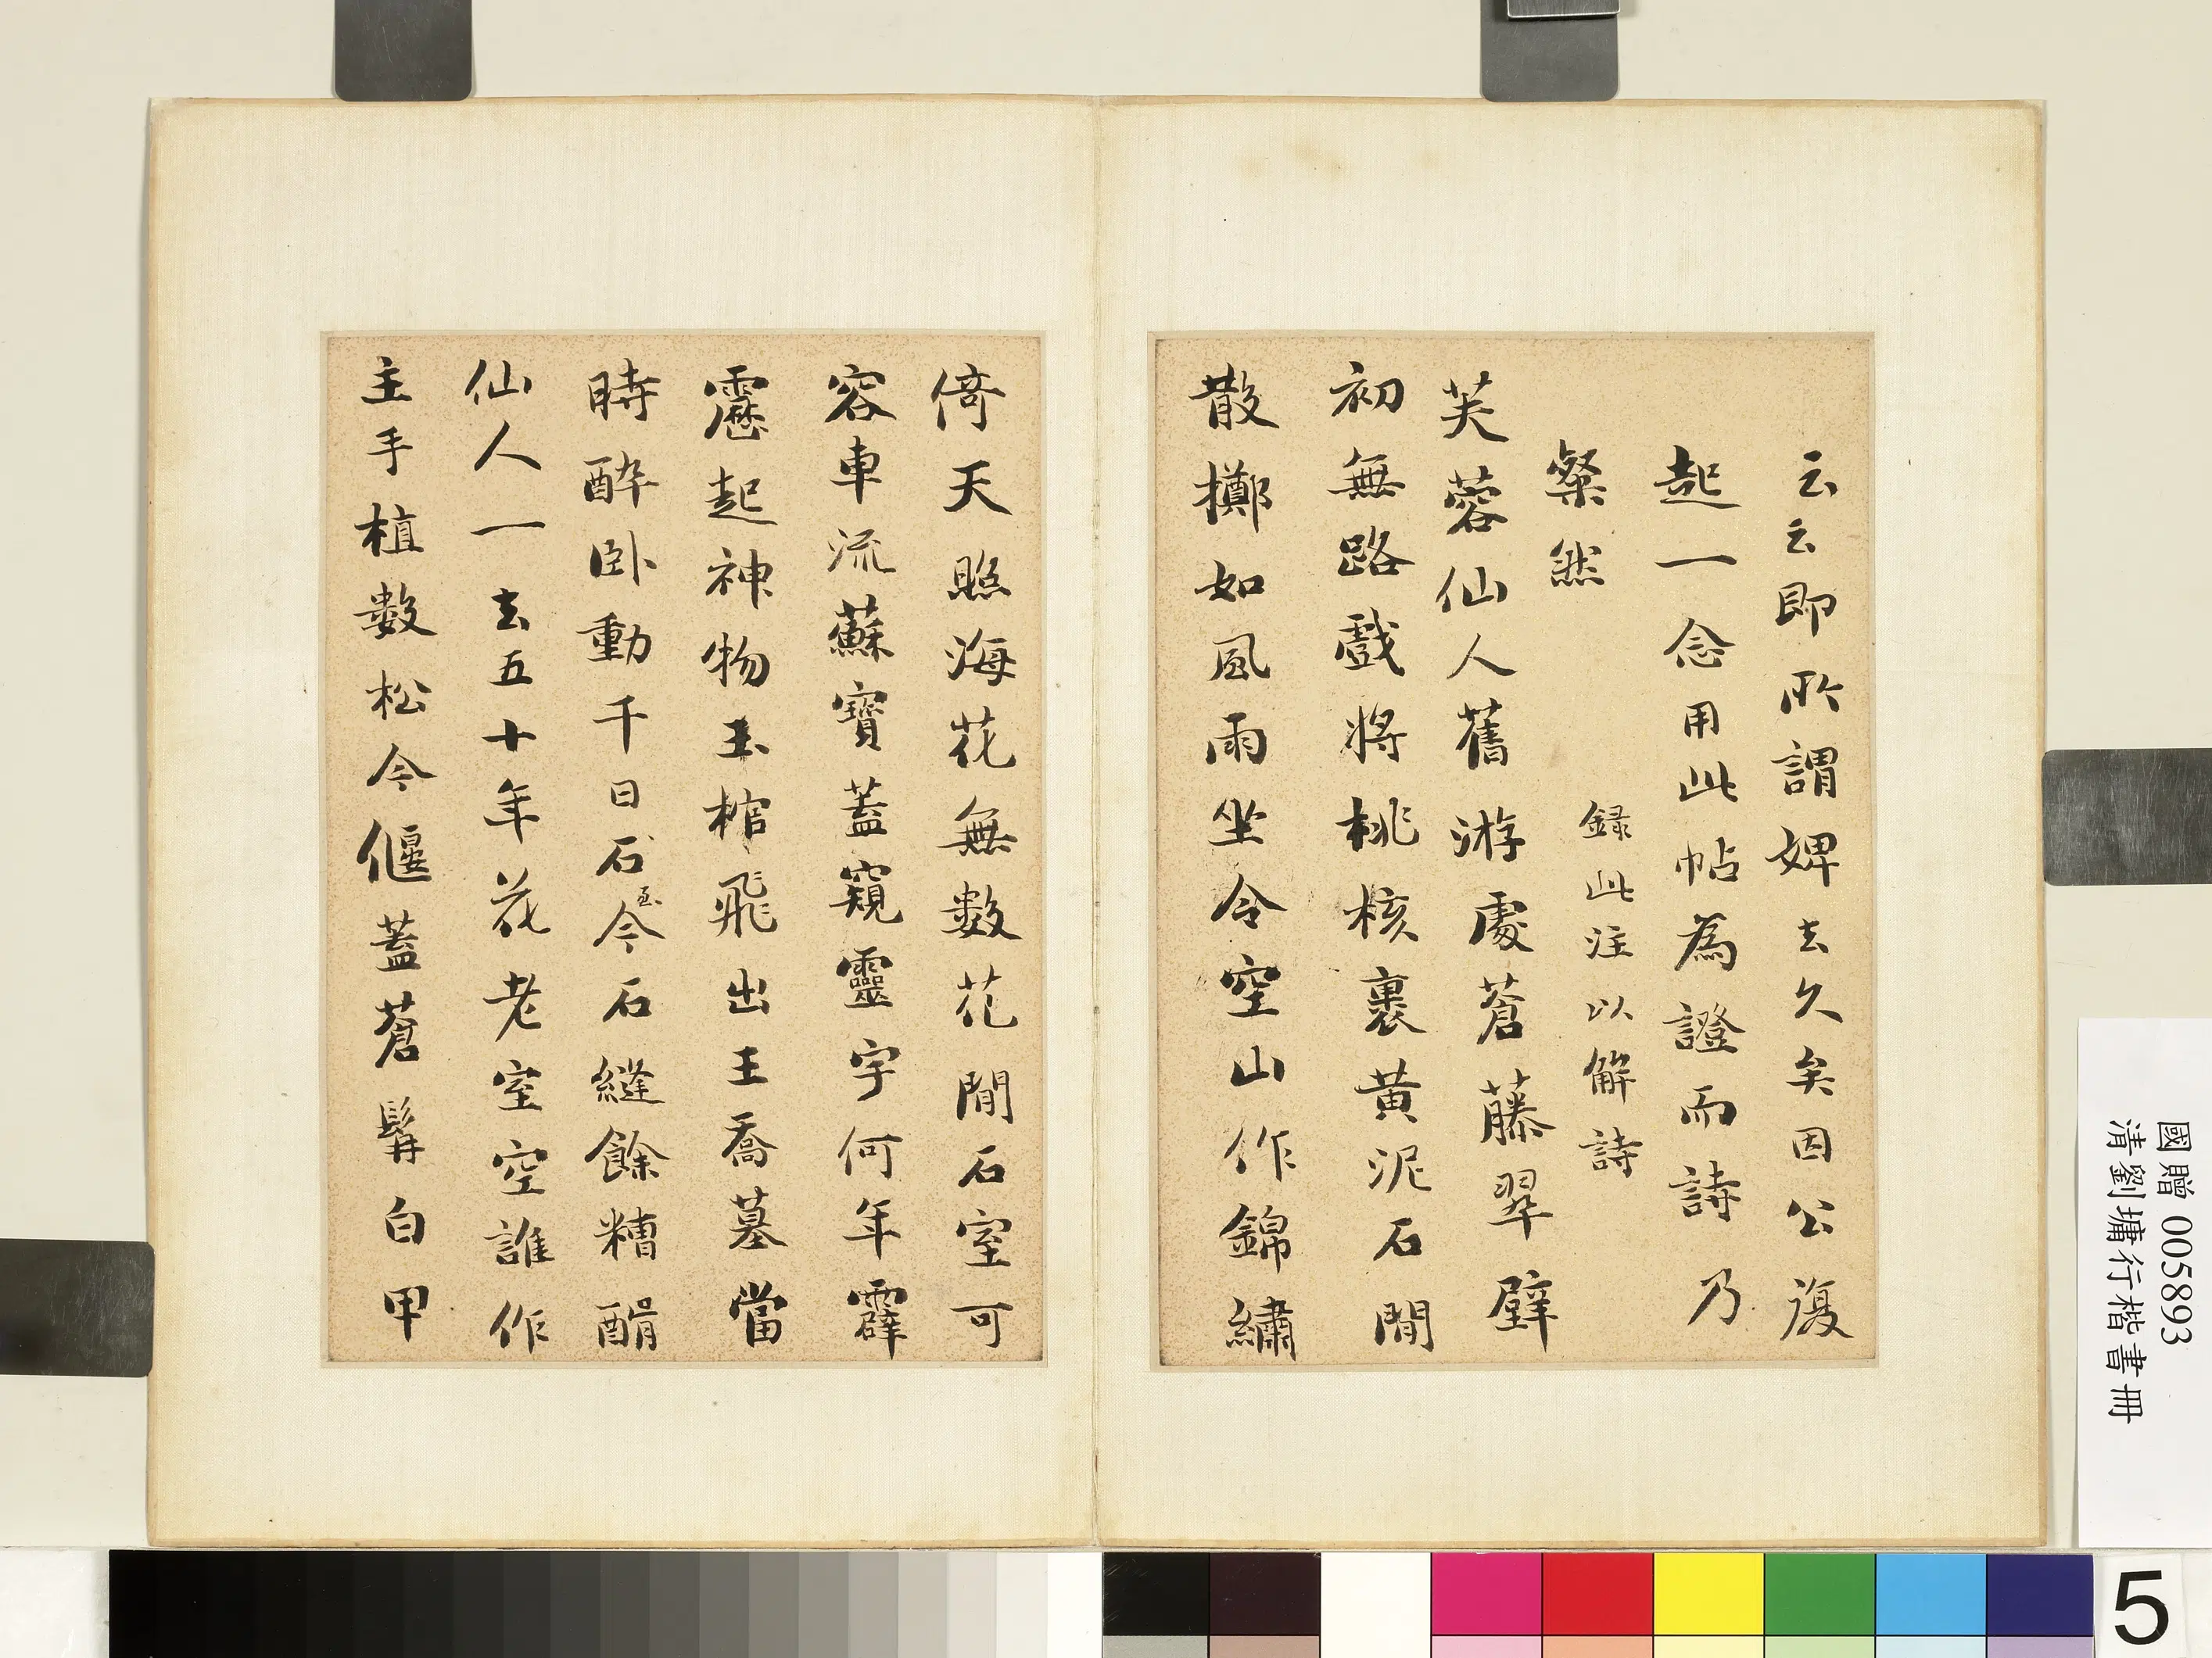 云云即所謂婢去久矣因公復
起一念用此帖為證而詩乃
粲然
録此注以解詩
芙蓉仙人舊游處蒼藤翠壁
初無路戲將桃核裹黃泥石間
散擲如風雨坐令空山作錦繡
倚天照海花無數花間石室可
容車流蘇寶蓋窺靈宇何年霹
靂起神物玉棺飛出王喬墓當
時醉卧動千日石至今石縫餘糟醑
仙人一去五十年花老室空誰作
主手植數松今偃蓋蒼髯白甲
國贈 005893
清劉墉行楷書冊
5